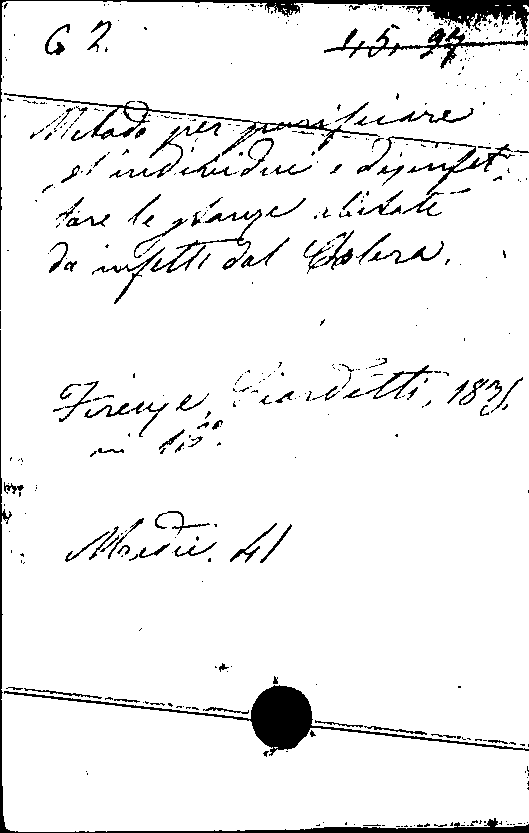 G 2. 45. 97
Metodo per purificare
gl'individui e disinfet-
tare le stanze abitate
da infetti dal Colera.
Firenze, Ciardetti, 183
in
Medic. 41